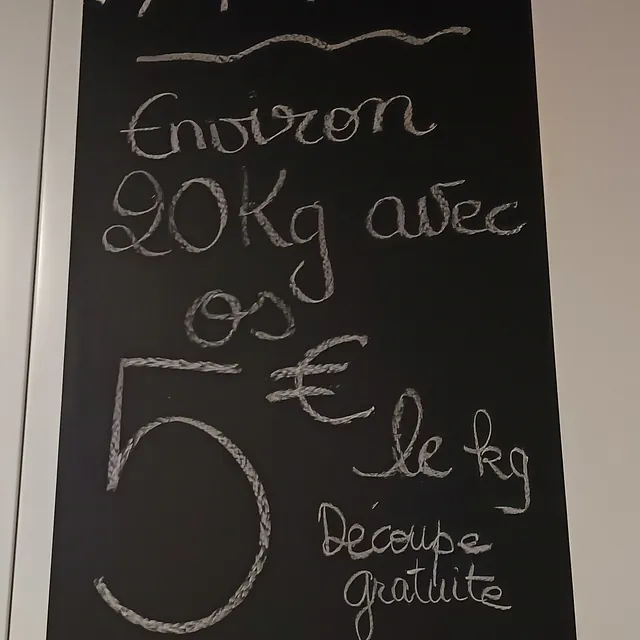 Environ
20Kg avec
os
5€ le kg
Découpe
gratuite